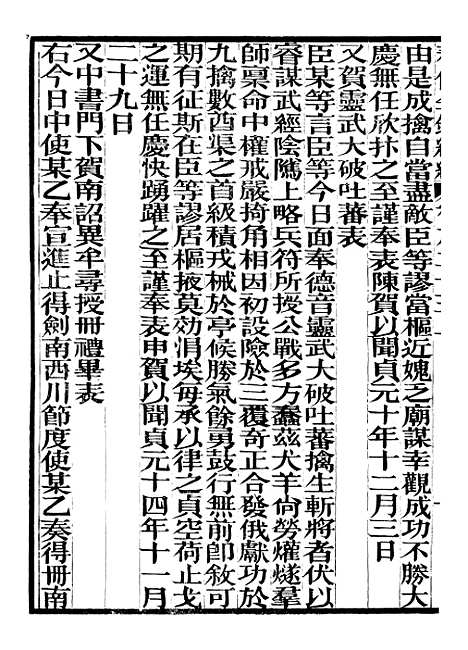 由是成擒自當盡敵臣等謬當樞近媿之廟謀幸觀成功不勝大
慶無任欣抃之至謹奉表陳賀以聞貞元十年十二月三日
又賀靈武大破吐蕃表
臣某等言臣等今日面奉德音靈武大破吐蕃擒生斬將者伏以
睿謀武經陰隲上略兵符所授公戰多方蠢茲犬羊尙勞爟燧羣
師稟命中權戒嚴掎角相因初設險於三覆奇正合發俄獻功於
九擒數酋渠之首級積戎械於亭候勝氣餘勇鼓行無前卽敘可
期有征斯在臣等謬居樞掖莫効涓埃每承以律之貞空荷止戈
之運無任慶快踴躍之至謹奉表申賀以聞貞元十四年十一月
二十九日
又中書門下賀南詔異牟尋授冊禮畢表
右今日中使某乙奉宣進止得劍南西川節度使某乙奏得冊南